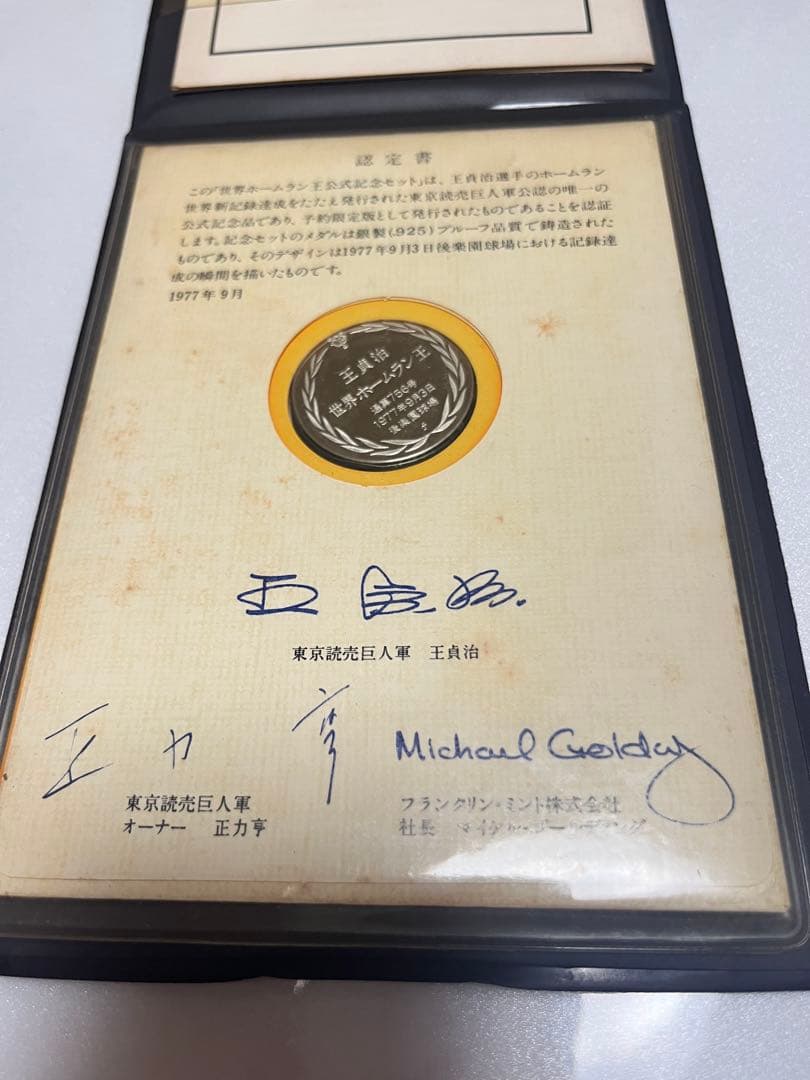 認定書
この「世界ホームラン王公式記念セット」は、王貞治選手のホームラン
世界新記録達成をたたえ発行された東京読売巨人軍公認の唯一の
公式記念品であり、予約限定版として発行されたものであることを認証
します。記念セットのメダルは銀製(.925)プルーフ品質で鋳造された
ものであり、そのデザインは1977年9月3日後楽園球場における記録達
成の瞬間を描いたものです。
1977年9月
王貞治
世界ホームラン王
通算756号
1977年9月3日
後楽園球場
王貞治
東京読売巨人軍 王貞治
正力亨
Michael Golding
東京読売巨人軍
オーナー 正力亨
フランクリン・ミント株式会社
社長 マイケル・ゴールディング